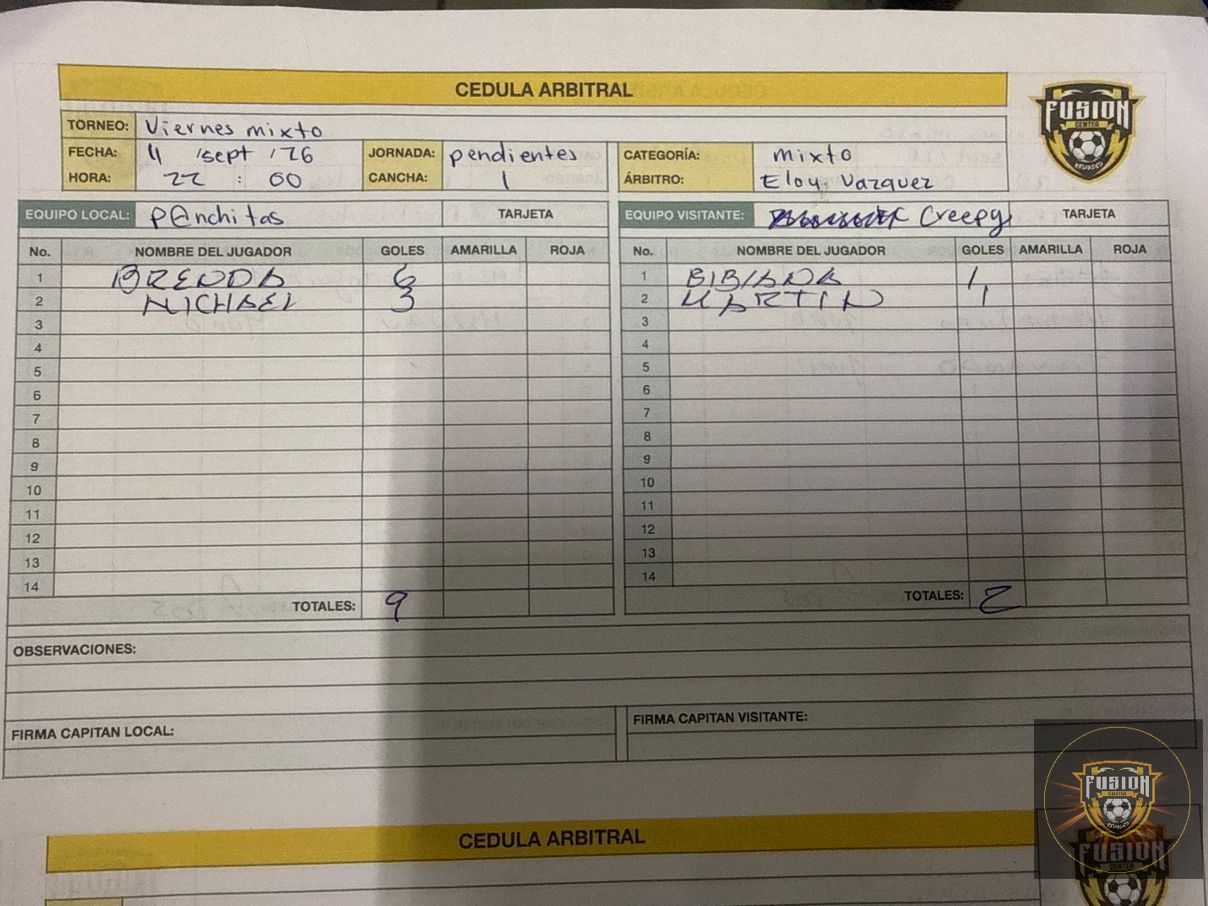 CEDULA ARBITRAL
FUSION
CENTER
RELOADED
TORNEO: Viernes mixto
FECHA: 11 /sept /26 JORNADA: pendientes CATEGORÍA: mixto
HORA: 22 : 00 CANCHA: 1 ÁRBITRO: Eloy Vazquez
EQUIPO LOCAL: P@nchitas TARJETA EQUIPO VISITANTE: Creepy TARJETA
No. NOMBRE DEL JUGADOR GOLES AMARILLA ROJA No. NOMBRE DEL JUGADOR GOLES AMARILLA ROJA
1 BRENDA 6 1 BIBIANA 1
2 MICHAEL 3 2 MARTIN 1
3 3
4 4
5 5
6 6
7 7
8 8
9 9
10 10
11 11
12 12
13 13
14 14
TOTALES: 9 TOTALES: 2
OBSERVACIONES:
FIRMA CAPITAN LOCAL: FIRMA CAPITAN VISITANTE:
FUSION
CENTER
RELOADED
CEDULA ARBITRAL
FUSION
CENTER